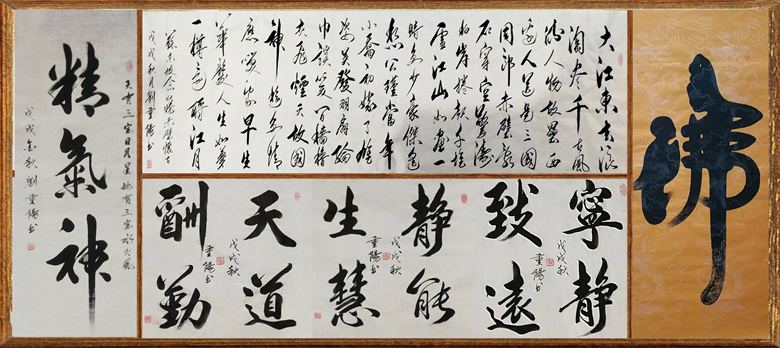 佛
大江東去浪
淘尽千古風
流人物故壘西
邊人道是三國
周郎赤壁亂
石穿空驚濤
拍岸捲起千堆
雪江山如畫一
時多少豪傑遥
想公瑾當年
小喬初嫁了雄
姿英發羽扇綸
巾談笑間檣櫓
灰飛煙滅故國
神遊多情
應笑我早生
華髮人生如夢
一樽還酹江月
蘇東坡念奴嬌赤壁懷古
戊戌秋月劉重陽书
寧静
戊戌秋
重陽书
致遠
静能
戊戌秋
重陽书
生慧
天道
戊戌秋
重陽书
酬勤
天有三宝日月星地有三宝水火風
精氣神
戊戌金秋劉重陽书